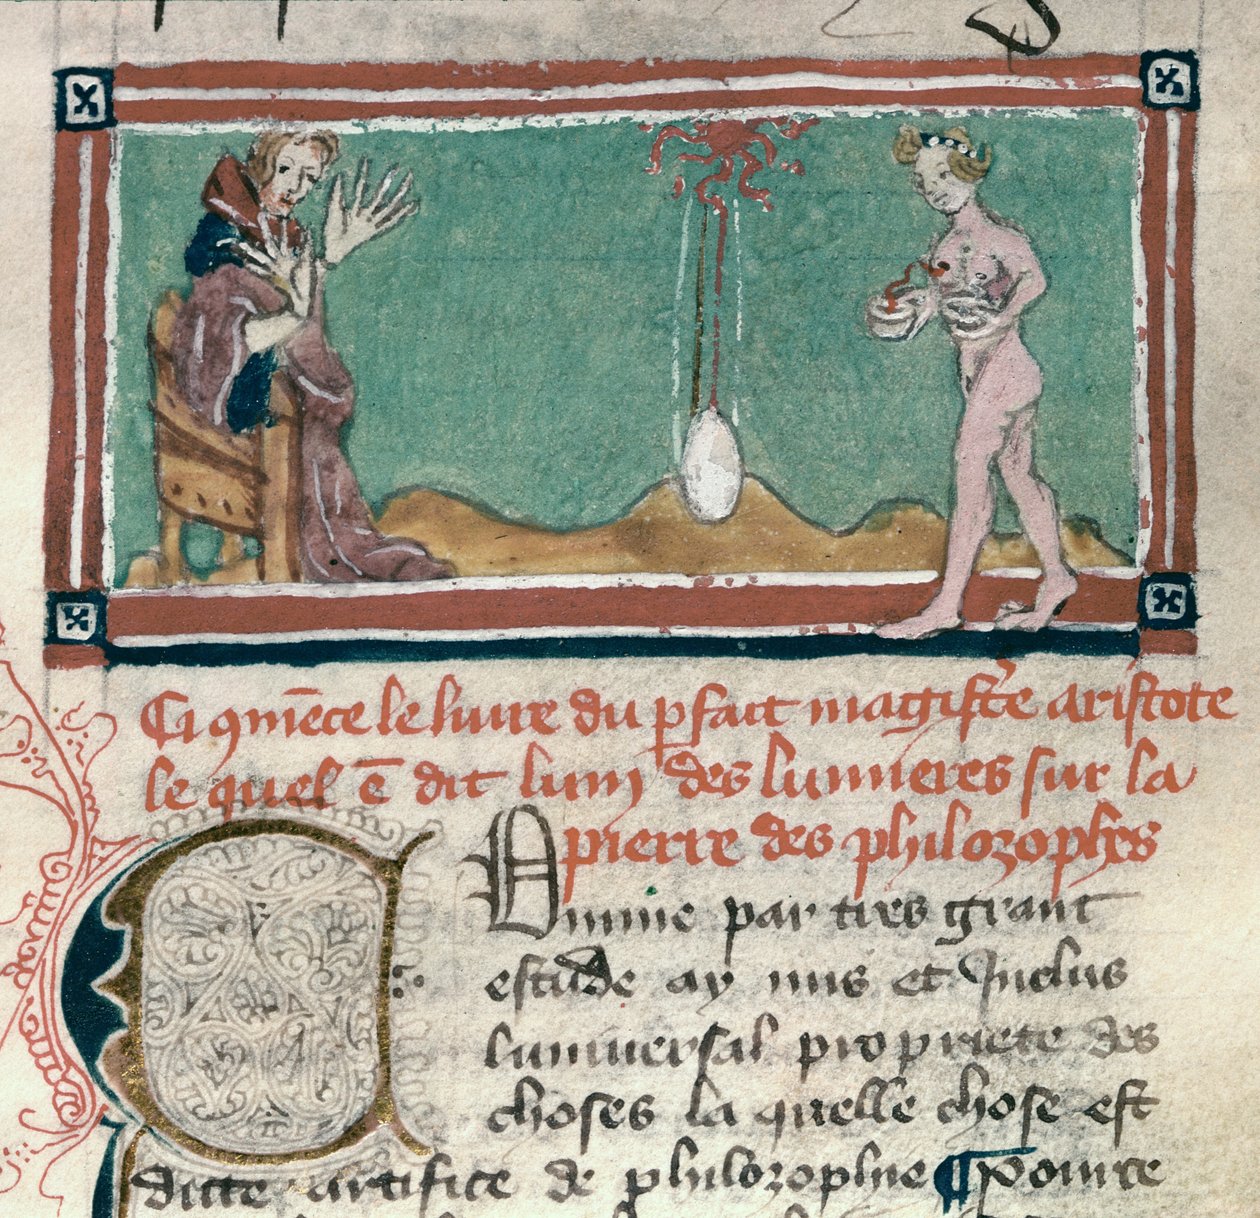 Ci 9mēce le liure du pfait magist̄e aristote
le quel ē dit lumĵ des lumieres sur la
pierre des philozophes
par tres grant
estude ay mis et Inclus
luniuersal propriete des
choses la quelle chose est
ditte artifice de philozophie ¶ pource